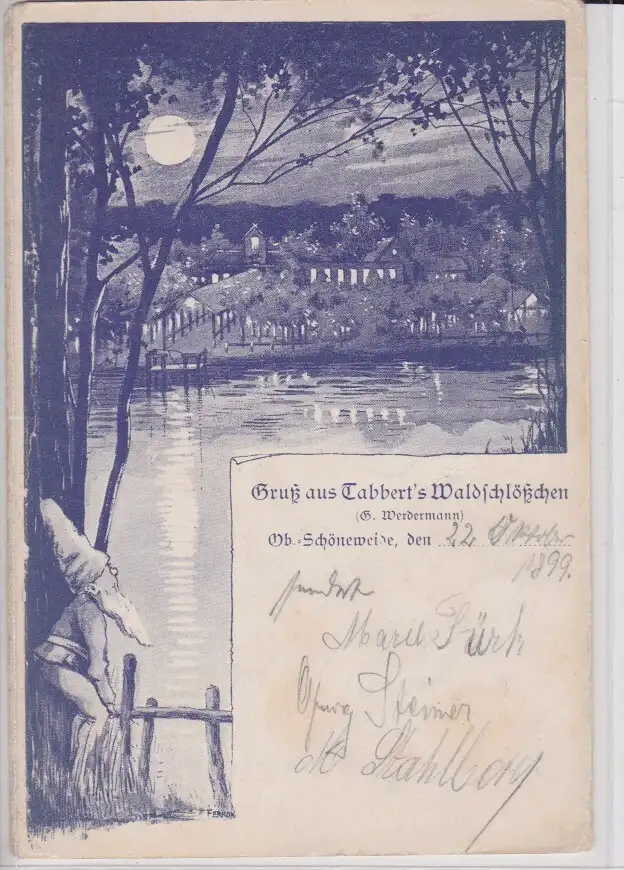 Gruß aus Tabbert's Waldschlößchen
(G. Werdermann)
Ob.-Schöneweide, den 22 Oktober
1899.
sendet
Steiner
Stahlberg